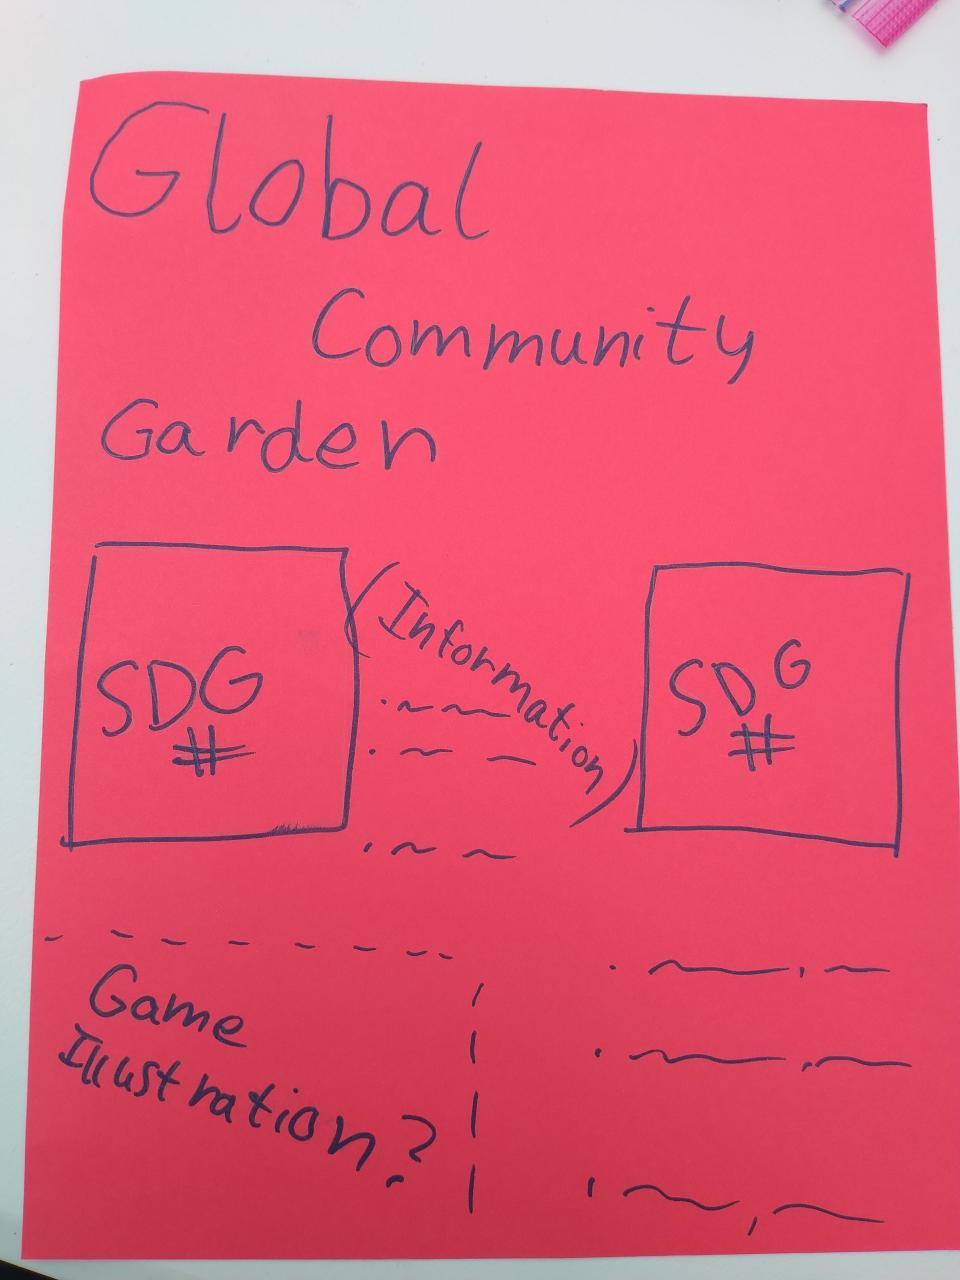 Global
Community
Garden
SDG
#
(Information)
SDG
#
Game
Illustration?